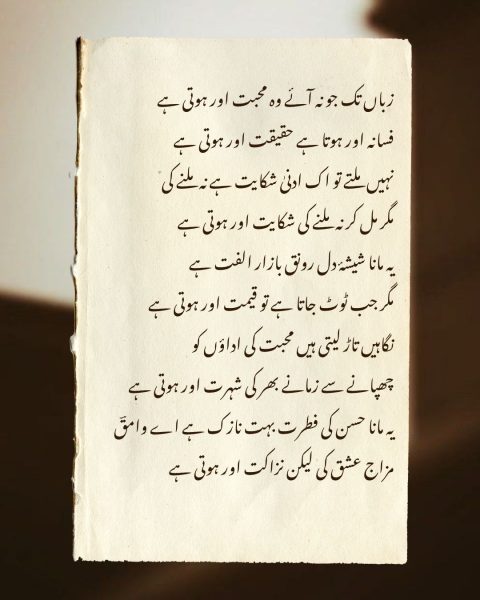 زباں تک جو نہ آئے وہ محبت اور ہوتی ہے
فسانہ اور ہوتا ہے حقیقت اور ہوتی ہے
نہیں ملتے تو اک ادنیٰ شکایت ہے نہ ملنے کی
مگر مل کر نہ ملنے کی شکایت اور ہوتی ہے
یہ مانا شیشۂ دل رونق بازار الفت ہے
مگر جب ٹوٹ جاتا ہے تو قیمت اور ہوتی ہے
نگاہیں تاڑ لیتی ہیں محبت کی اداؤں کو
چھپانے سے زمانے بھر کی شہرت اور ہوتی ہے
یہ مانا حسن کی فطرت بہت نازک ہے اے وامقؔ
مزاج عشق کی لیکن نزاکت اور ہوتی ہے